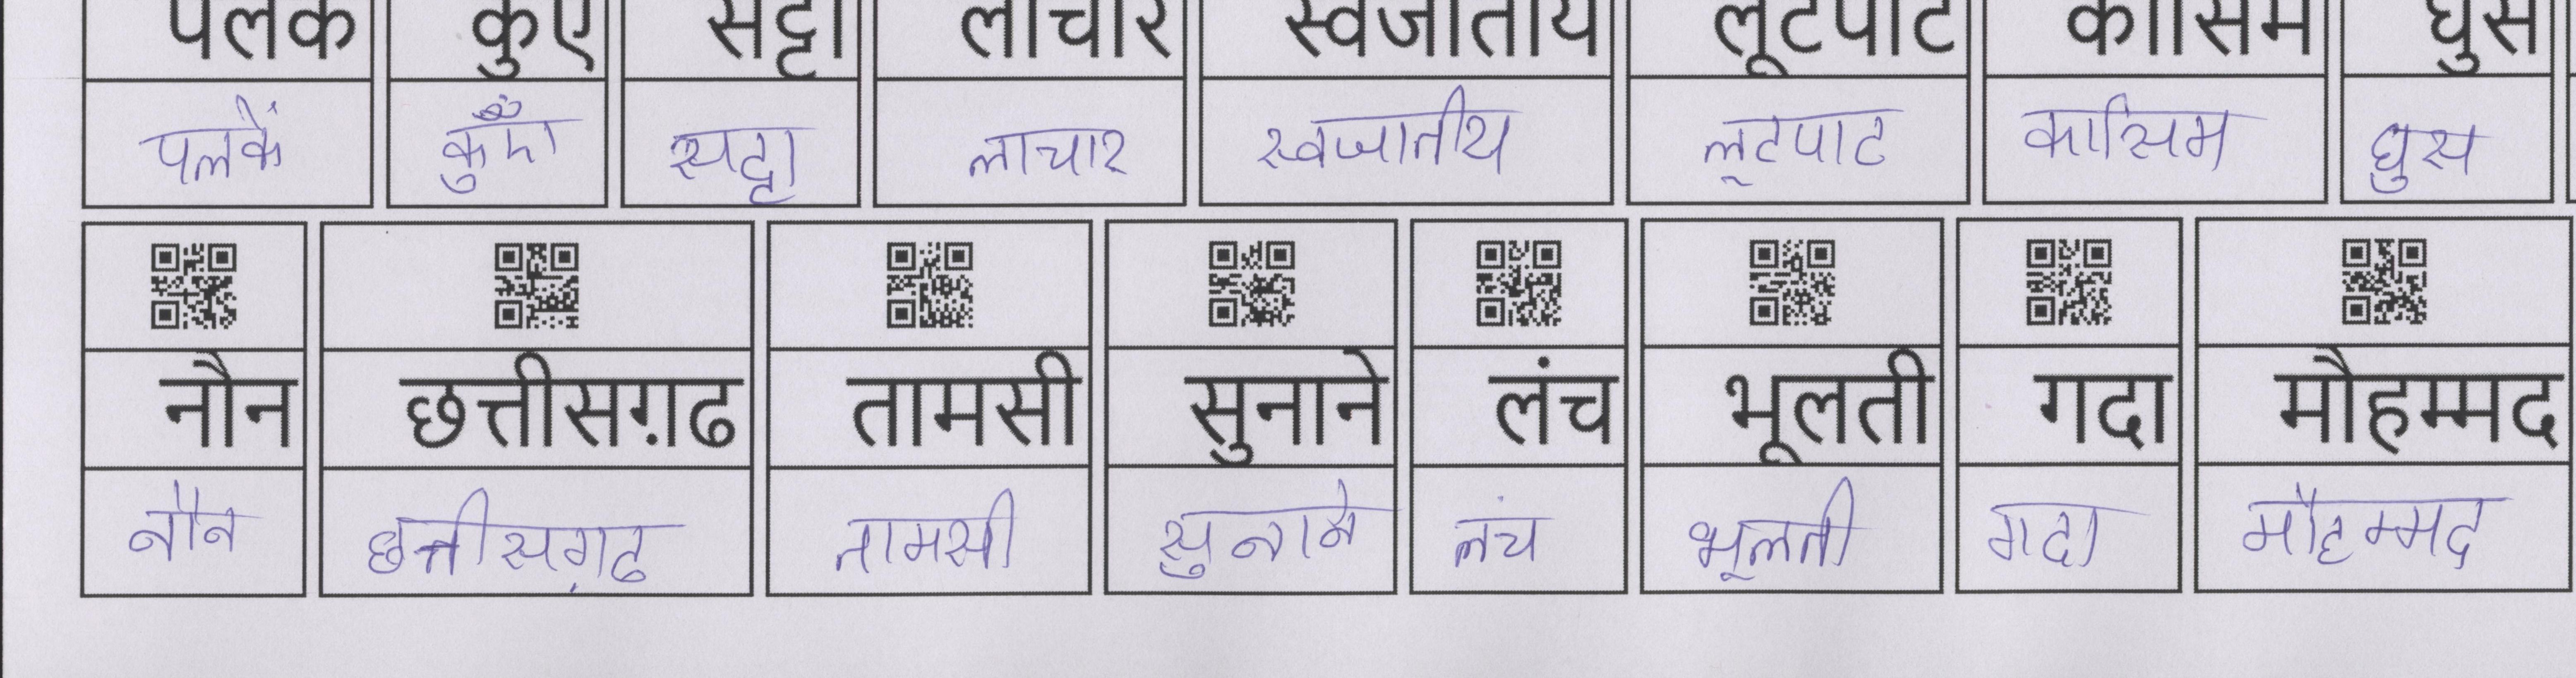 पलकें कुएँ सट्टा लाचार स्वजातीय लूटपाट कासिम घुस
पलकें कुएँ सट्टा लाचार स्वजातीय लूटपाट कासिम घुस
नौन छत्तीसग़ढ तामसी सुनाने लंच भूलती गदा मौहम्मद
नौन छत्तीसग़ढ तामसी सुनाने लंच भूलती गदा मौहम्मद